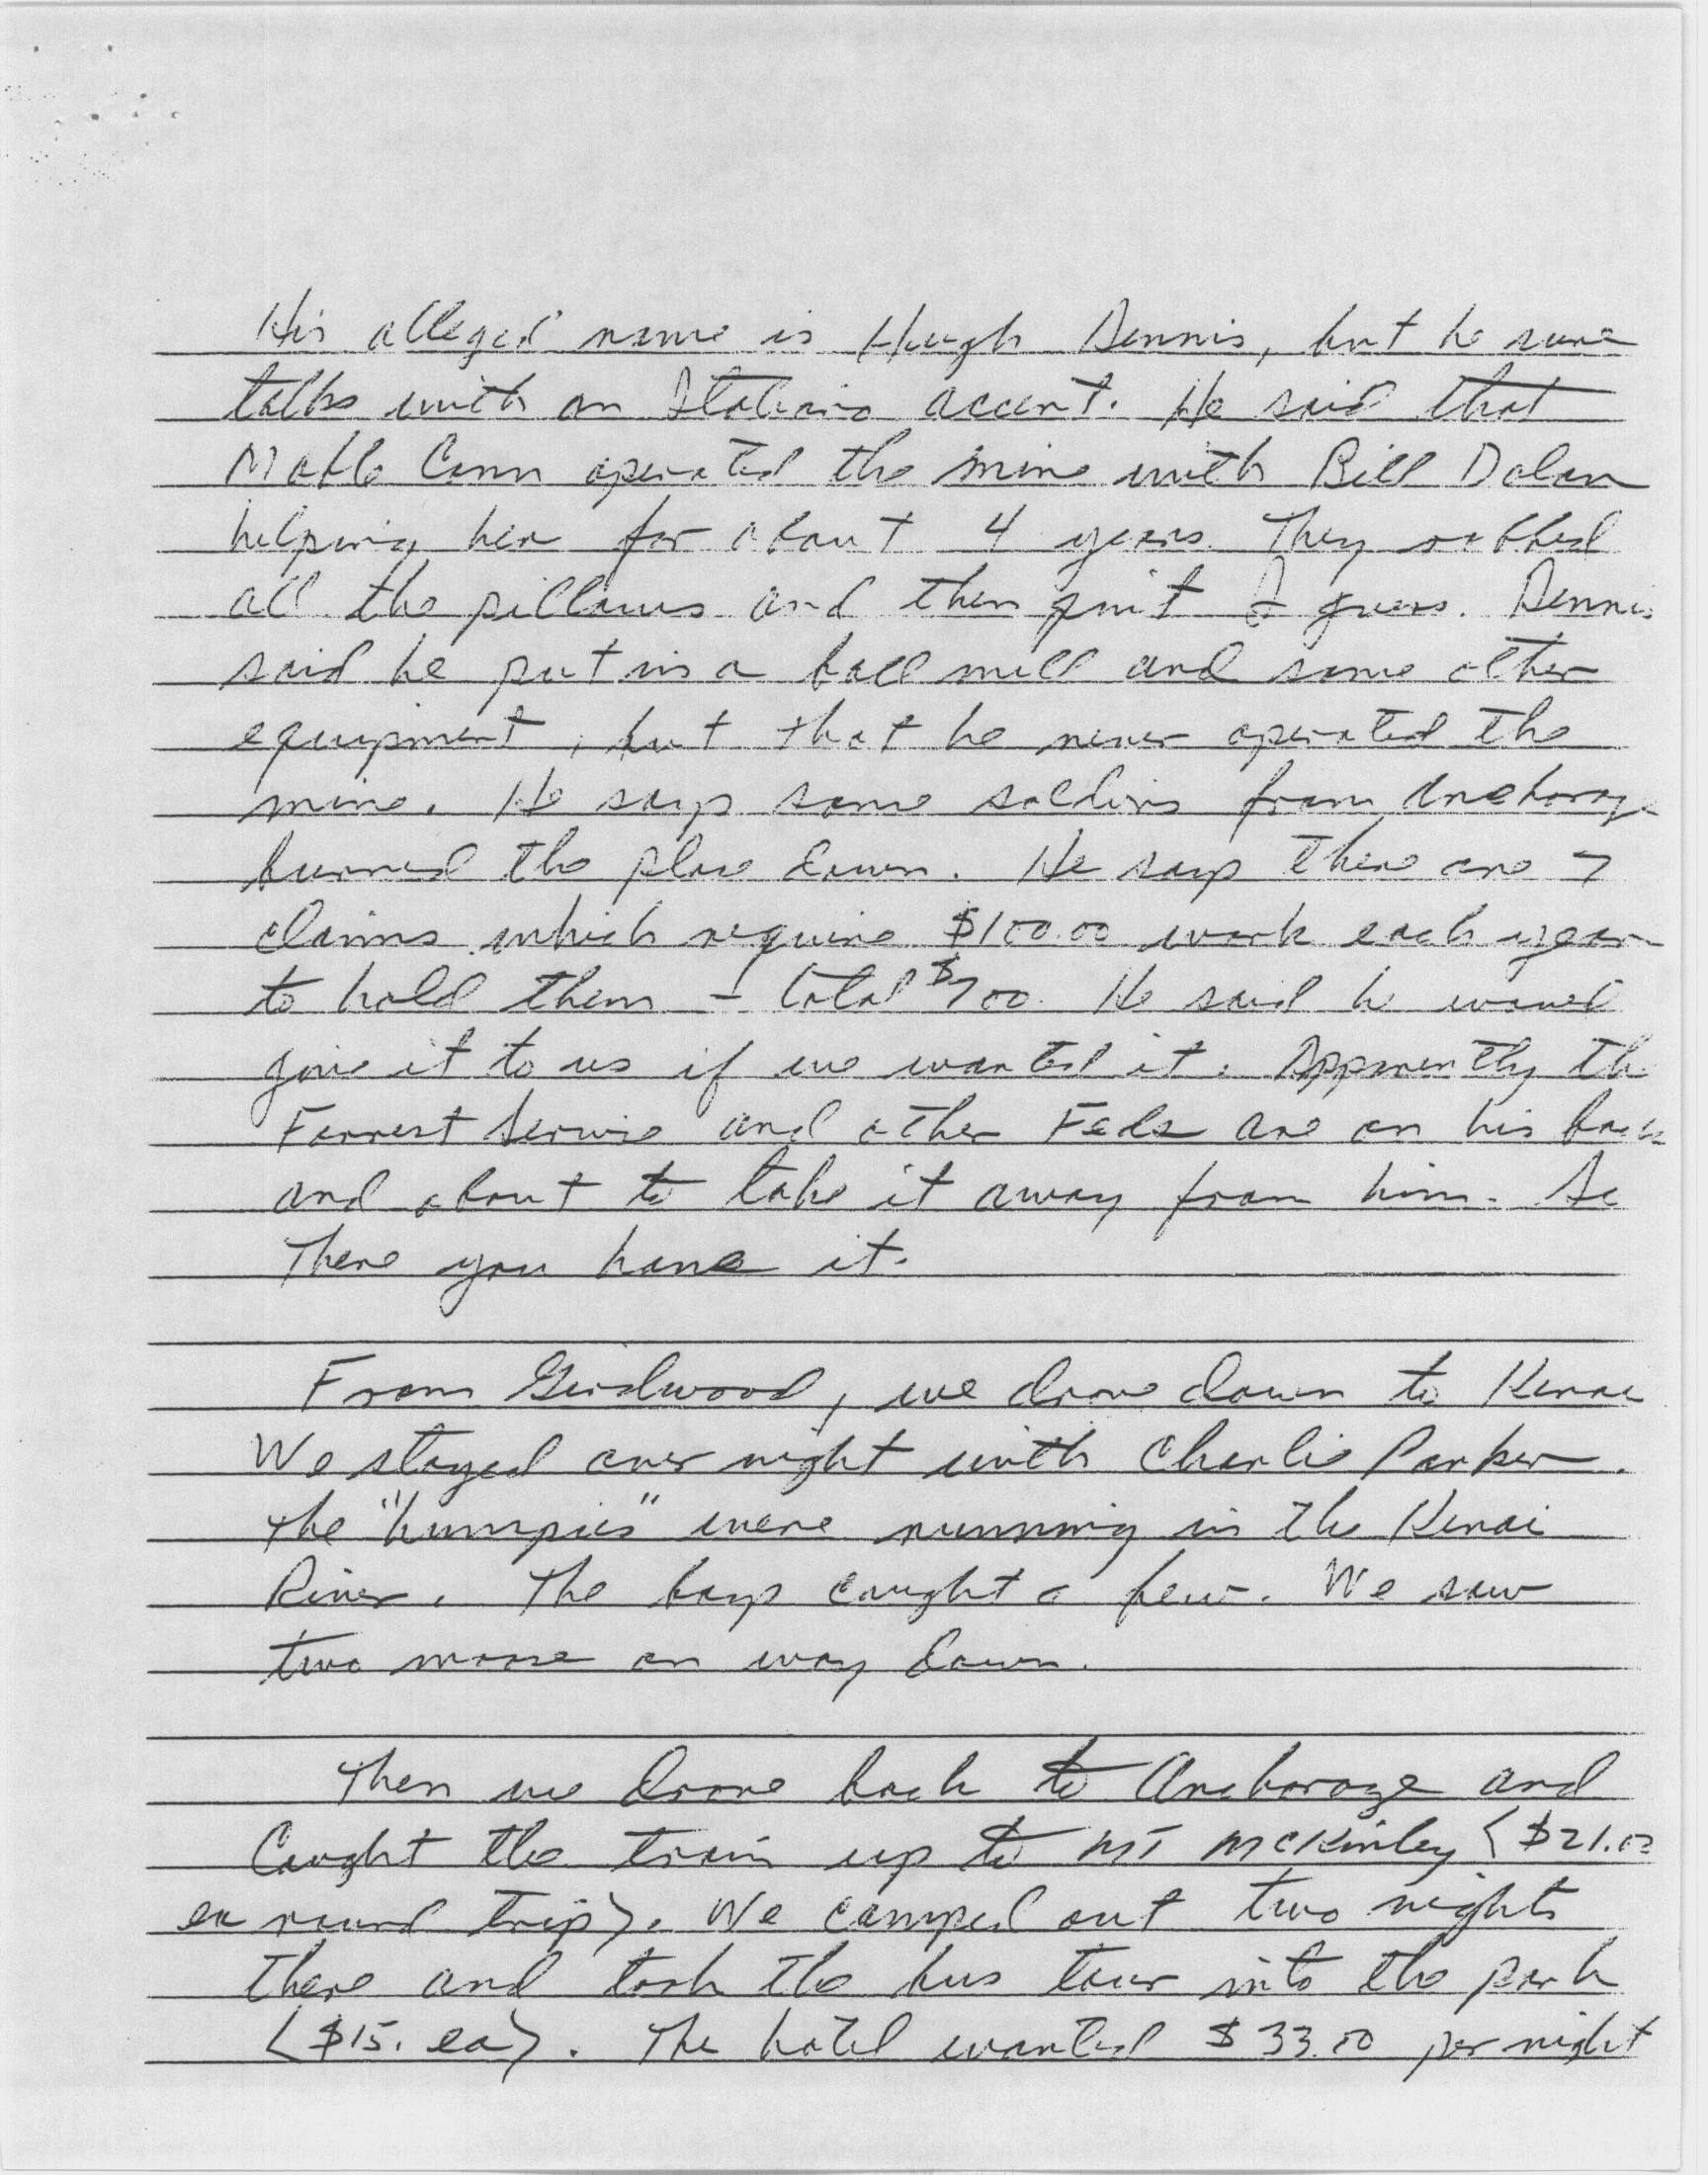 His alleged name is Hugh Dennis, but he sure
talks with an Italians accent. He said that
Mable Conn operated the mine with Bill Dolan
helping her for about 4 years. They robbed
all the pillaws and then quit I guess. Dennis
said he put in a ball mill and some other
equipment, but that he never operated the
mine. He says some soldiers from Anchorage
burned the place down. He says there are 7
claims which require $100.00 work each year
to hold them - total $700. He said he would
give it to us if we wanted it. Apparently the
Forrest Service and other Feds are on his back
and about to take it away from him. So
There you have it.
From Girdwood, we drove down to Kenai
We stayed over night with Charlie Parker.
The "humpies" were running in the Kenai
River. The boys caught a few. We saw
two moose on way down.
Then we drove back to Anchorage and
Caught the train up to MT McKinley ($21.00
ea round trip). We camped out two nights
there and took the bus tour into the park
($15. ea). The hotel wanted $33.00 per night